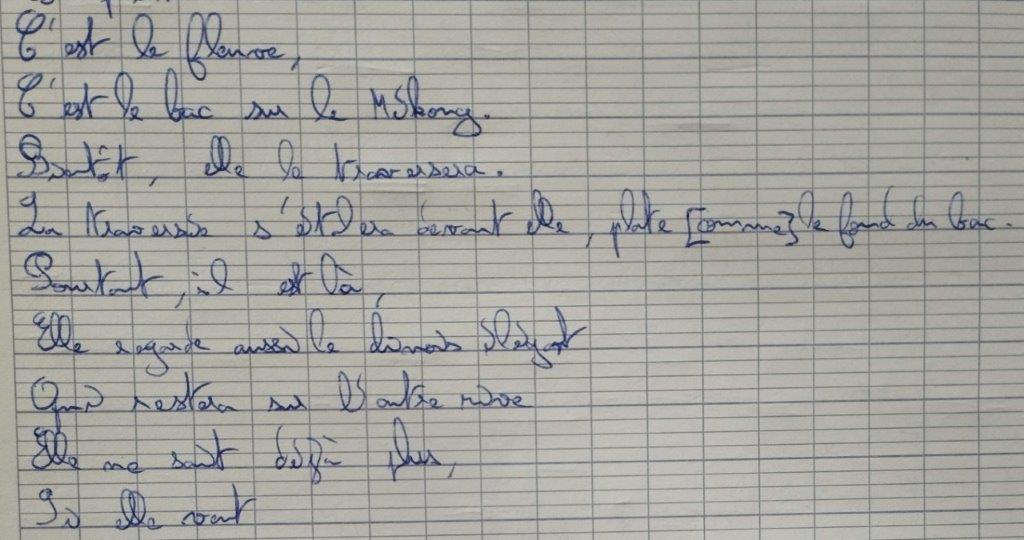 C'est le fleuve,
C'est le bac sur le Mékong.
Bientôt, elle le traversera.
La traversée s'étalera devant elle, plate [comme] le fond du bac.
Pourtant, il est là,
Elle regarde aussi le chinois élégant
Qui restera sur l'autre rive
Elle ne sait déjà plus,
Si elle veut